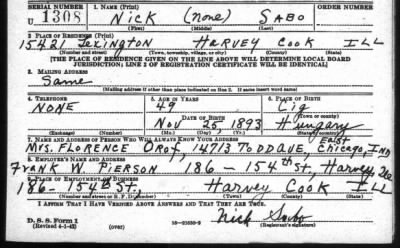 SERIAL NUMBER 1. NAME (Print) ORDER NUMBER
U 1308 NICK (none) SABO
(First) (Middle) (Last)
2. PLACE OF RESIDENCE (Print)
15421 Lexington HARVEY COOK ILL
(Number and street) (Town, township, village, or city) (County) (State)
[THE PLACE OF RESIDENCE GIVEN ON THE LINE ABOVE WILL DETERMINE LOCAL BOARD
JURISDICTION; LINE 2 OF REGISTRATION CERTIFICATE WILL BE IDENTICAL]
3. MAILING ADDRESS
Same
[Mailing address if other than place indicated on line 2. If same insert word same]
4. TELEPHONE 5. AGE IN YEARS 6. PLACE OF BIRTH
NONE 49 Cig
DATE OF BIRTH (Town or county)
Nov 25, 1893 Hungary
(Exchange) (Number) (Mo.) (Day) (Yr.) (State or country)
7. NAME AND ADDRESS OF PERSON WHO WILL ALWAYS KNOW YOUR ADDRESS East
Mrs. FLORENCE OROS, 14713 TODD AVE, Chicago, IND
8. EMPLOYER'S NAME AND ADDRESS
FRANK W. PIERSON 186 - 154th St., Harvey, Ill
9. PLACE OF EMPLOYMENT OR BUSINESS
186 - 154th St., Harvey COOK ILL
(Number and street or R. F. D. number) (Town) (County) (State)
I AFFIRM THAT I HAVE VERIFIED ABOVE ANSWERS AND THAT THEY ARE TRUE.
D. S. S. Form 1 Nick Sabo
(Revised 4-1-42) (Registrant's signature)